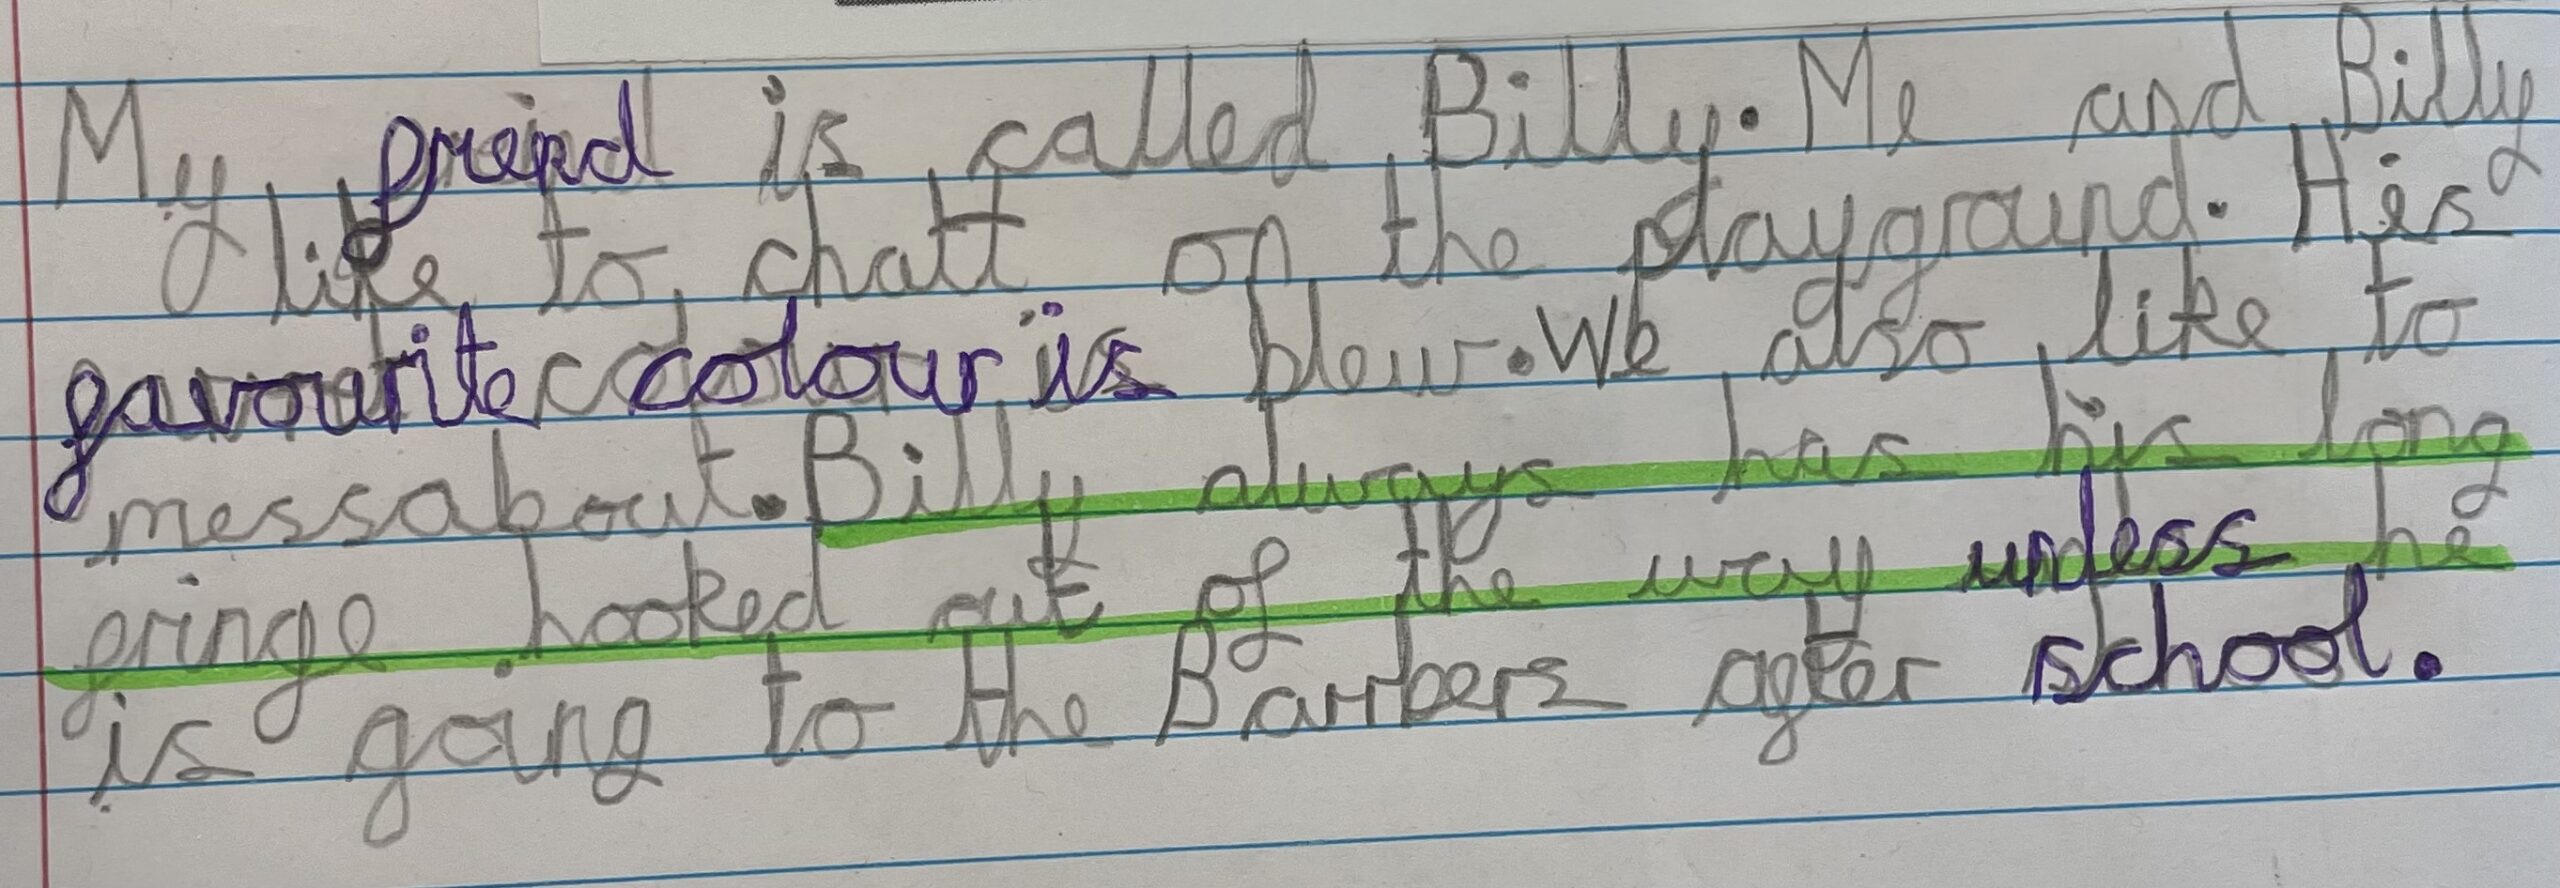 My friend is called Billy. Me and Billy
like to chatt on the playground. His
favourite colour is blew. We also like to
messabout. Billy always has his long
fringe hooked out of the way unless he
is going to the Barbers after school.